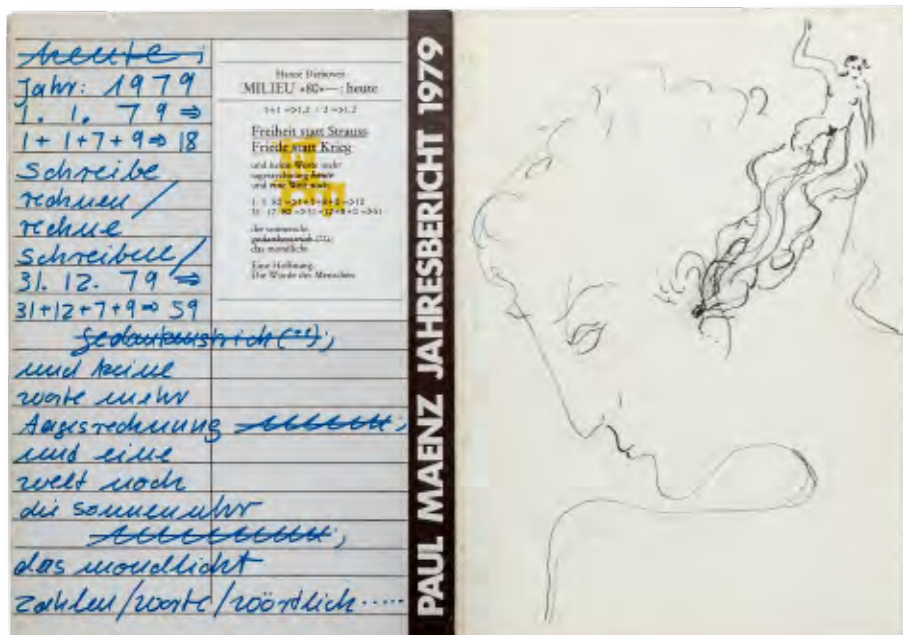 heute;
Jahr: 1979
1. 1. 79 ⇒
1+1+7+9⇒ 18
Schreibe
rechnen /
rechne
Schreiben /
31. 12. 79 ⇒
31+12+7+9⇒ 59
gedankenstrich(en),
und keine
worte mehr
tagesrechnung
und eine
welt noch
die sonnenuhr
das mondlicht
zahlen/worte/wörtlich.....
Hanne Darboven
MILIEU »80«—: heute
1+1 =>1,2 : 2 =>1,2
Freiheit statt Strauss
Friede statt Krieg
und keine Worte mehr
tagesrechnung heute
und eine Welt noch
die sonnenuhr
gedankenstrich
das mondlicht
Eine Hoffnung:
Die Würde des Menschen
PAUL MAENZ JAHRESBERICHT 1979